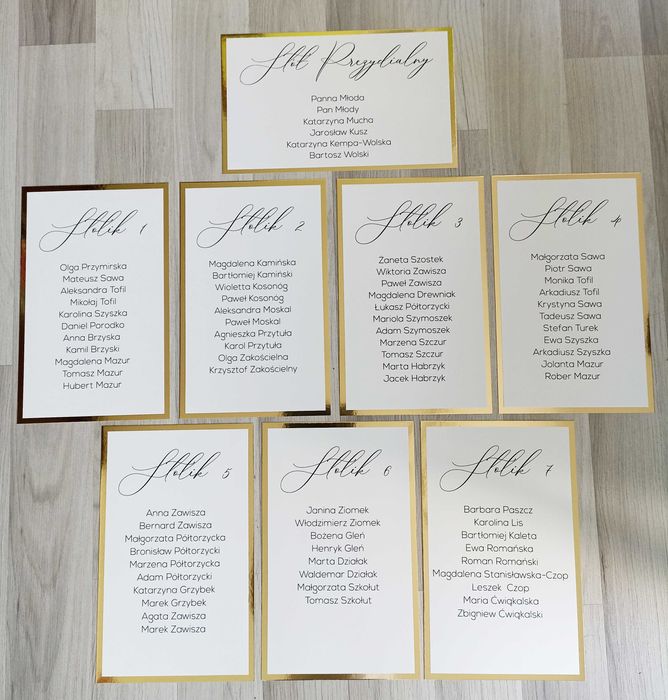 Stół Prezydialny
Panna Młoda
Pan Młody
Katarzyna Mucha
Jarosław Kusz
Katarzyna Kempa-Wolska
Bartosz Wolski
Stolik 1
Olga Przymirska
Mateusz Sawa
Aleksandra Tofil
Mikołaj Tofil
Karolina Szyszka
Daniel Porodko
Anna Brzyska
Kamil Brzyski
Magdalena Mazur
Tomasz Mazur
Hubert Mazur
Stolik 2
Magdalena Kamińska
Bartłomiej Kamiński
Wioletta Kosonóg
Paweł Kosonóg
Aleksandra Moskal
Paweł Moskal
Agnieszka Przytuła
Karol Przytuła
Olga Zakościelna
Krzysztof Zakościelny
Stolik 3
Żaneta Szostek
Wiktoria Zawisza
Paweł Zawisza
Magdalena Drewniak
Łukasz Półtorzycki
Mariola Szymoszek
Adam Szymoszek
Marzena Szczur
Tomasz Szczur
Marta Habrzyk
Jacek Habrzyk
Stolik 4
Małgorzata Sawa
Piotr Sawa
Monika Tofil
Arkadiusz Tofil
Krystyna Sawa
Tadeusz Sawa
Stefan Turek
Ewa Szyszka
Arkadiusz Szyszka
Jolanta Mazur
Rober Mazur
Stolik 5
Anna Zawisza
Bernard Zawisza
Małgorzata Półtorzycka
Bronisław Półtorzycki
Marzena Półtorzycka
Adam Półtorzycki
Katarzyna Grzybek
Marek Grzybek
Agata Zawisza
Marek Zawisza
Stolik 6
Janina Ziomek
Włodzimierz Ziomek
Bożena Gleń
Henryk Gleń
Marta Działak
Waldemar Działak
Małgorzata Szkołut
Tomasz Szkołut
Stolik 7
Barbara Paszcz
Karolina Lis
Bartłomiej Kaleta
Ewa Romańska
Roman Romański
Magdalena Stanisławska-Czop
Leszek Czop
Maria Ćwiąkalska
Zbigniew Ćwiąkalski